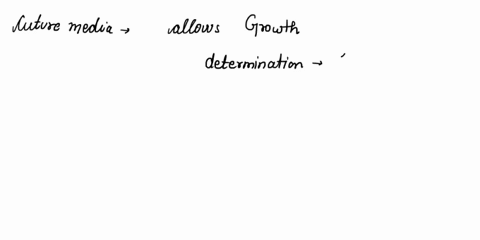 Cuture media → allows Growth
determination →